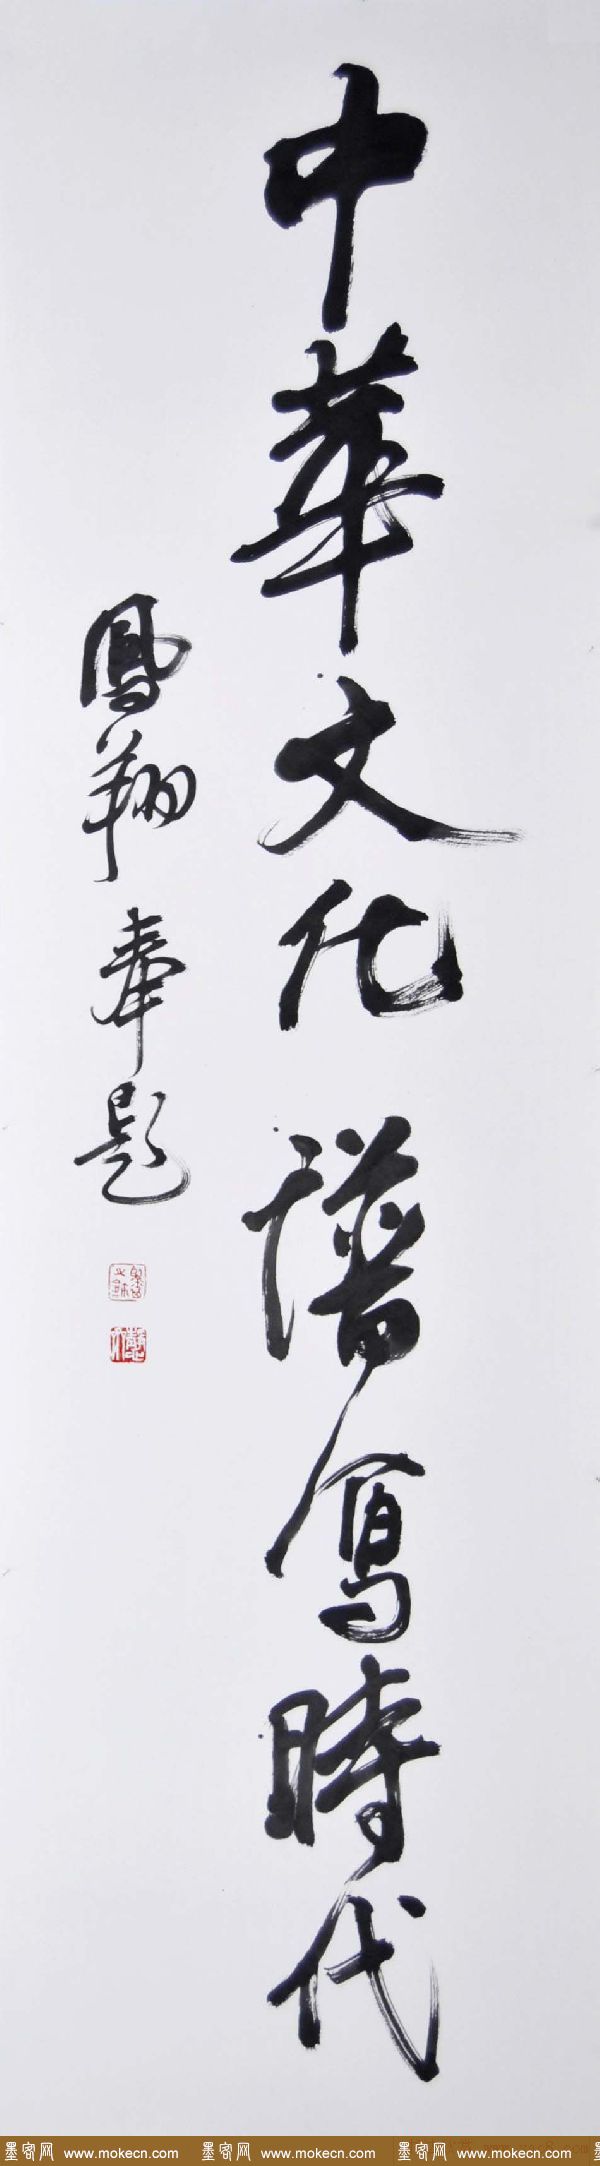 中華文化 譜寫時代
鳳翔 奉題
墨客网 www.mokecn.com 墨客网 www.mokecn.com 墨客网 www.mokecn.com